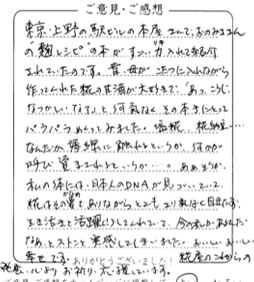 ご意見・ご感想
東京・上野の駅ビルの本屋さんで、おのみささん
の麹レシピの本がすごい力入れて紹介
されていたのです。昔、母がこたつに入れながら
作ってくれた糀の甘酒が大好きで、「あっ、こうじ、
なつかしいなァ」と何気なくその本を手にとって
パラパラめくってみました。塩糀、糀納豆……
なんだか 琴線に触れるというか、何かが
呼び覚まされるというか…。ああそうか、
私の体には、日本人のDNAが息づいていて、
糀はその昔でありながらとても
生き活きと活躍してくれていて、今の私があるんだ
なあ、とストンと実感してしまいました。おいしい、おいしい
幸せです。ありがとうございました！ 糀屋のこれからの
発展、心よりお祈り、応援しています。